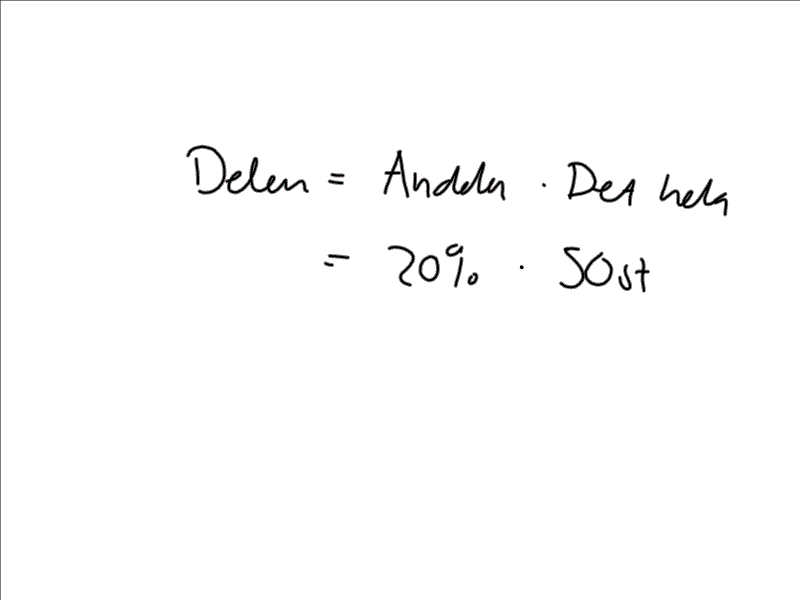 Delen = Andelen · Det hela
= 20% · 50st